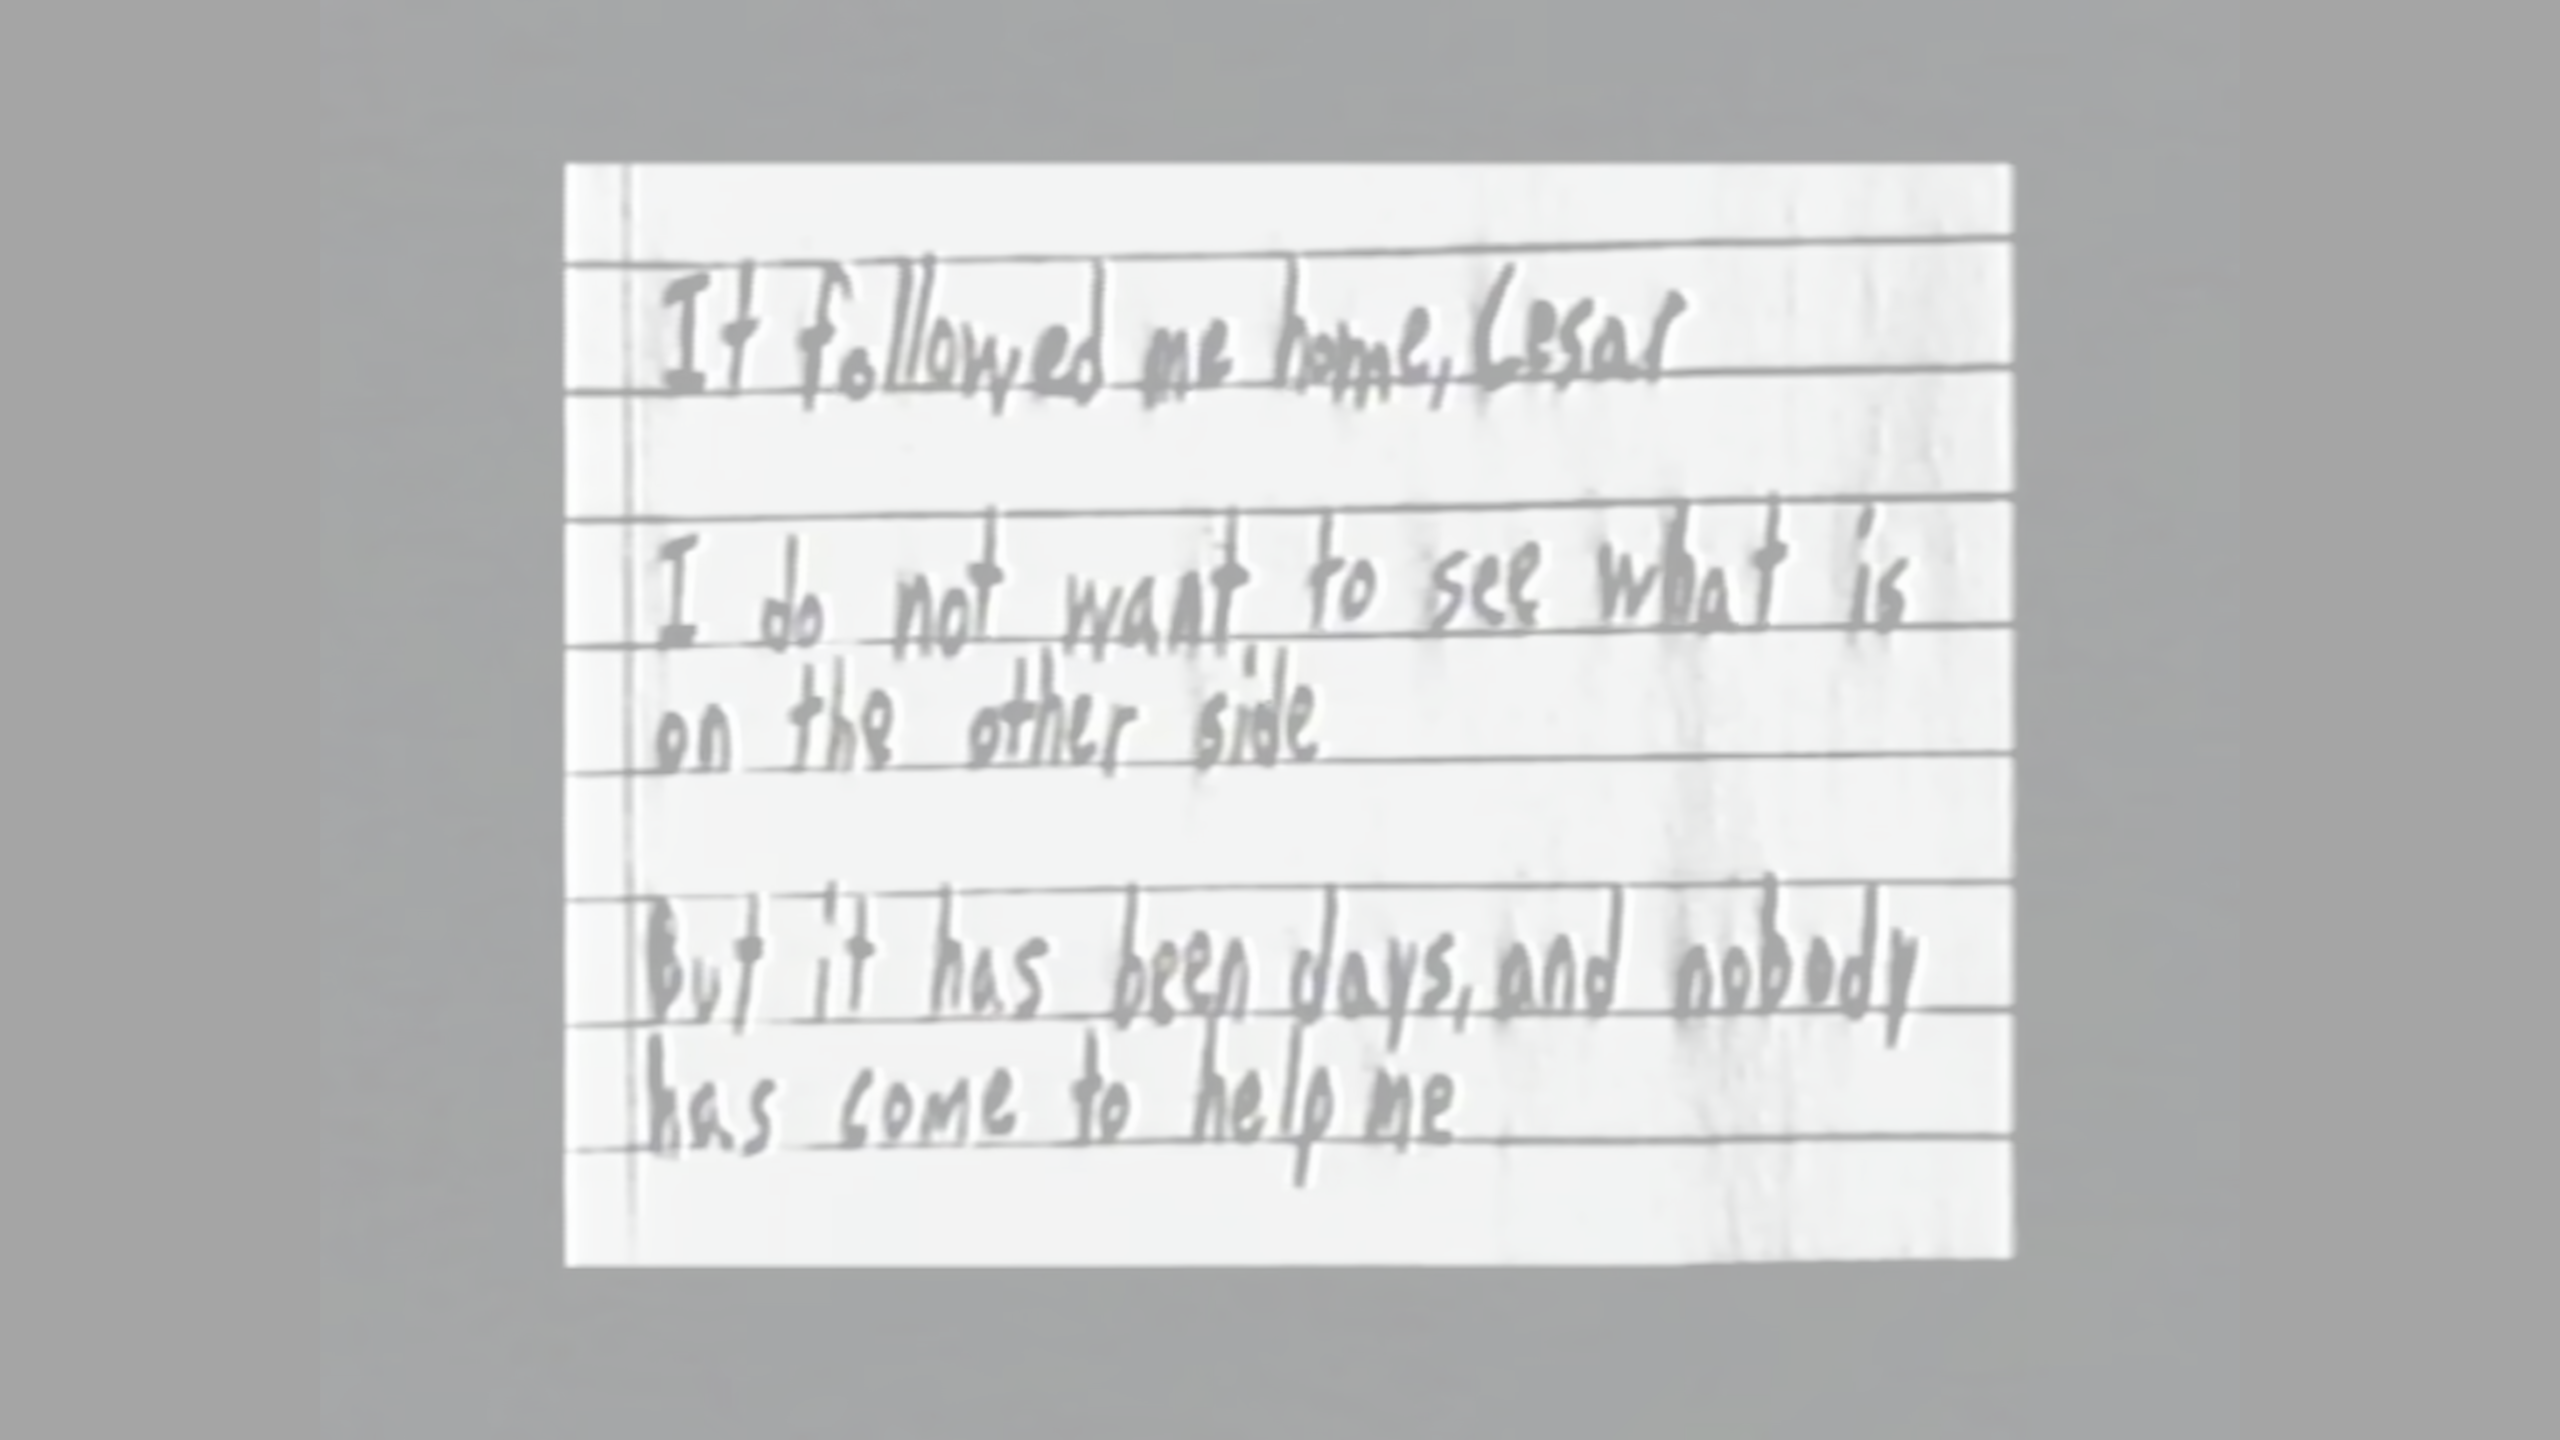 It followed me home, Cesar
I do not want to see what is
on the other side
But it has been days, and nobody
has come to help me